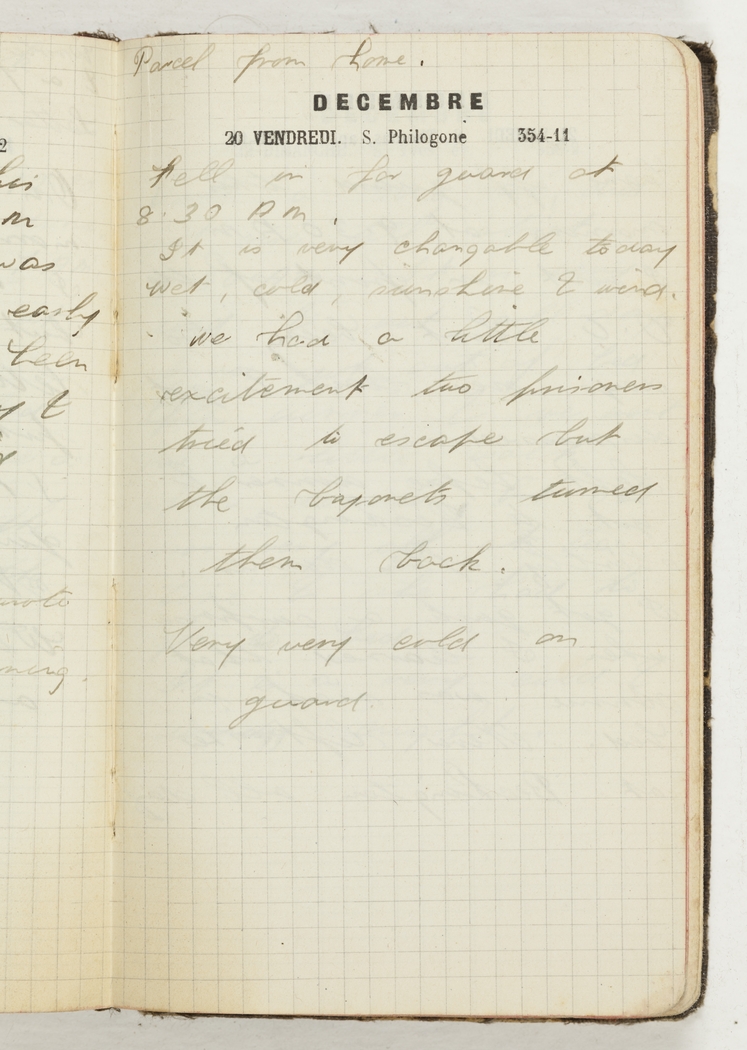 Parcel from home.
DECEMBRE
20 VENDREDI. S. Philogone 354-11
Fell in for guard at
8.30 AM.
It is very changable today
wet, cold, sunshine & wind.
we had a little
excitement two prisoners
tried to escape but
the bayonets turned
them back.
Very very cold on
guard.
2
was
easly
been
&